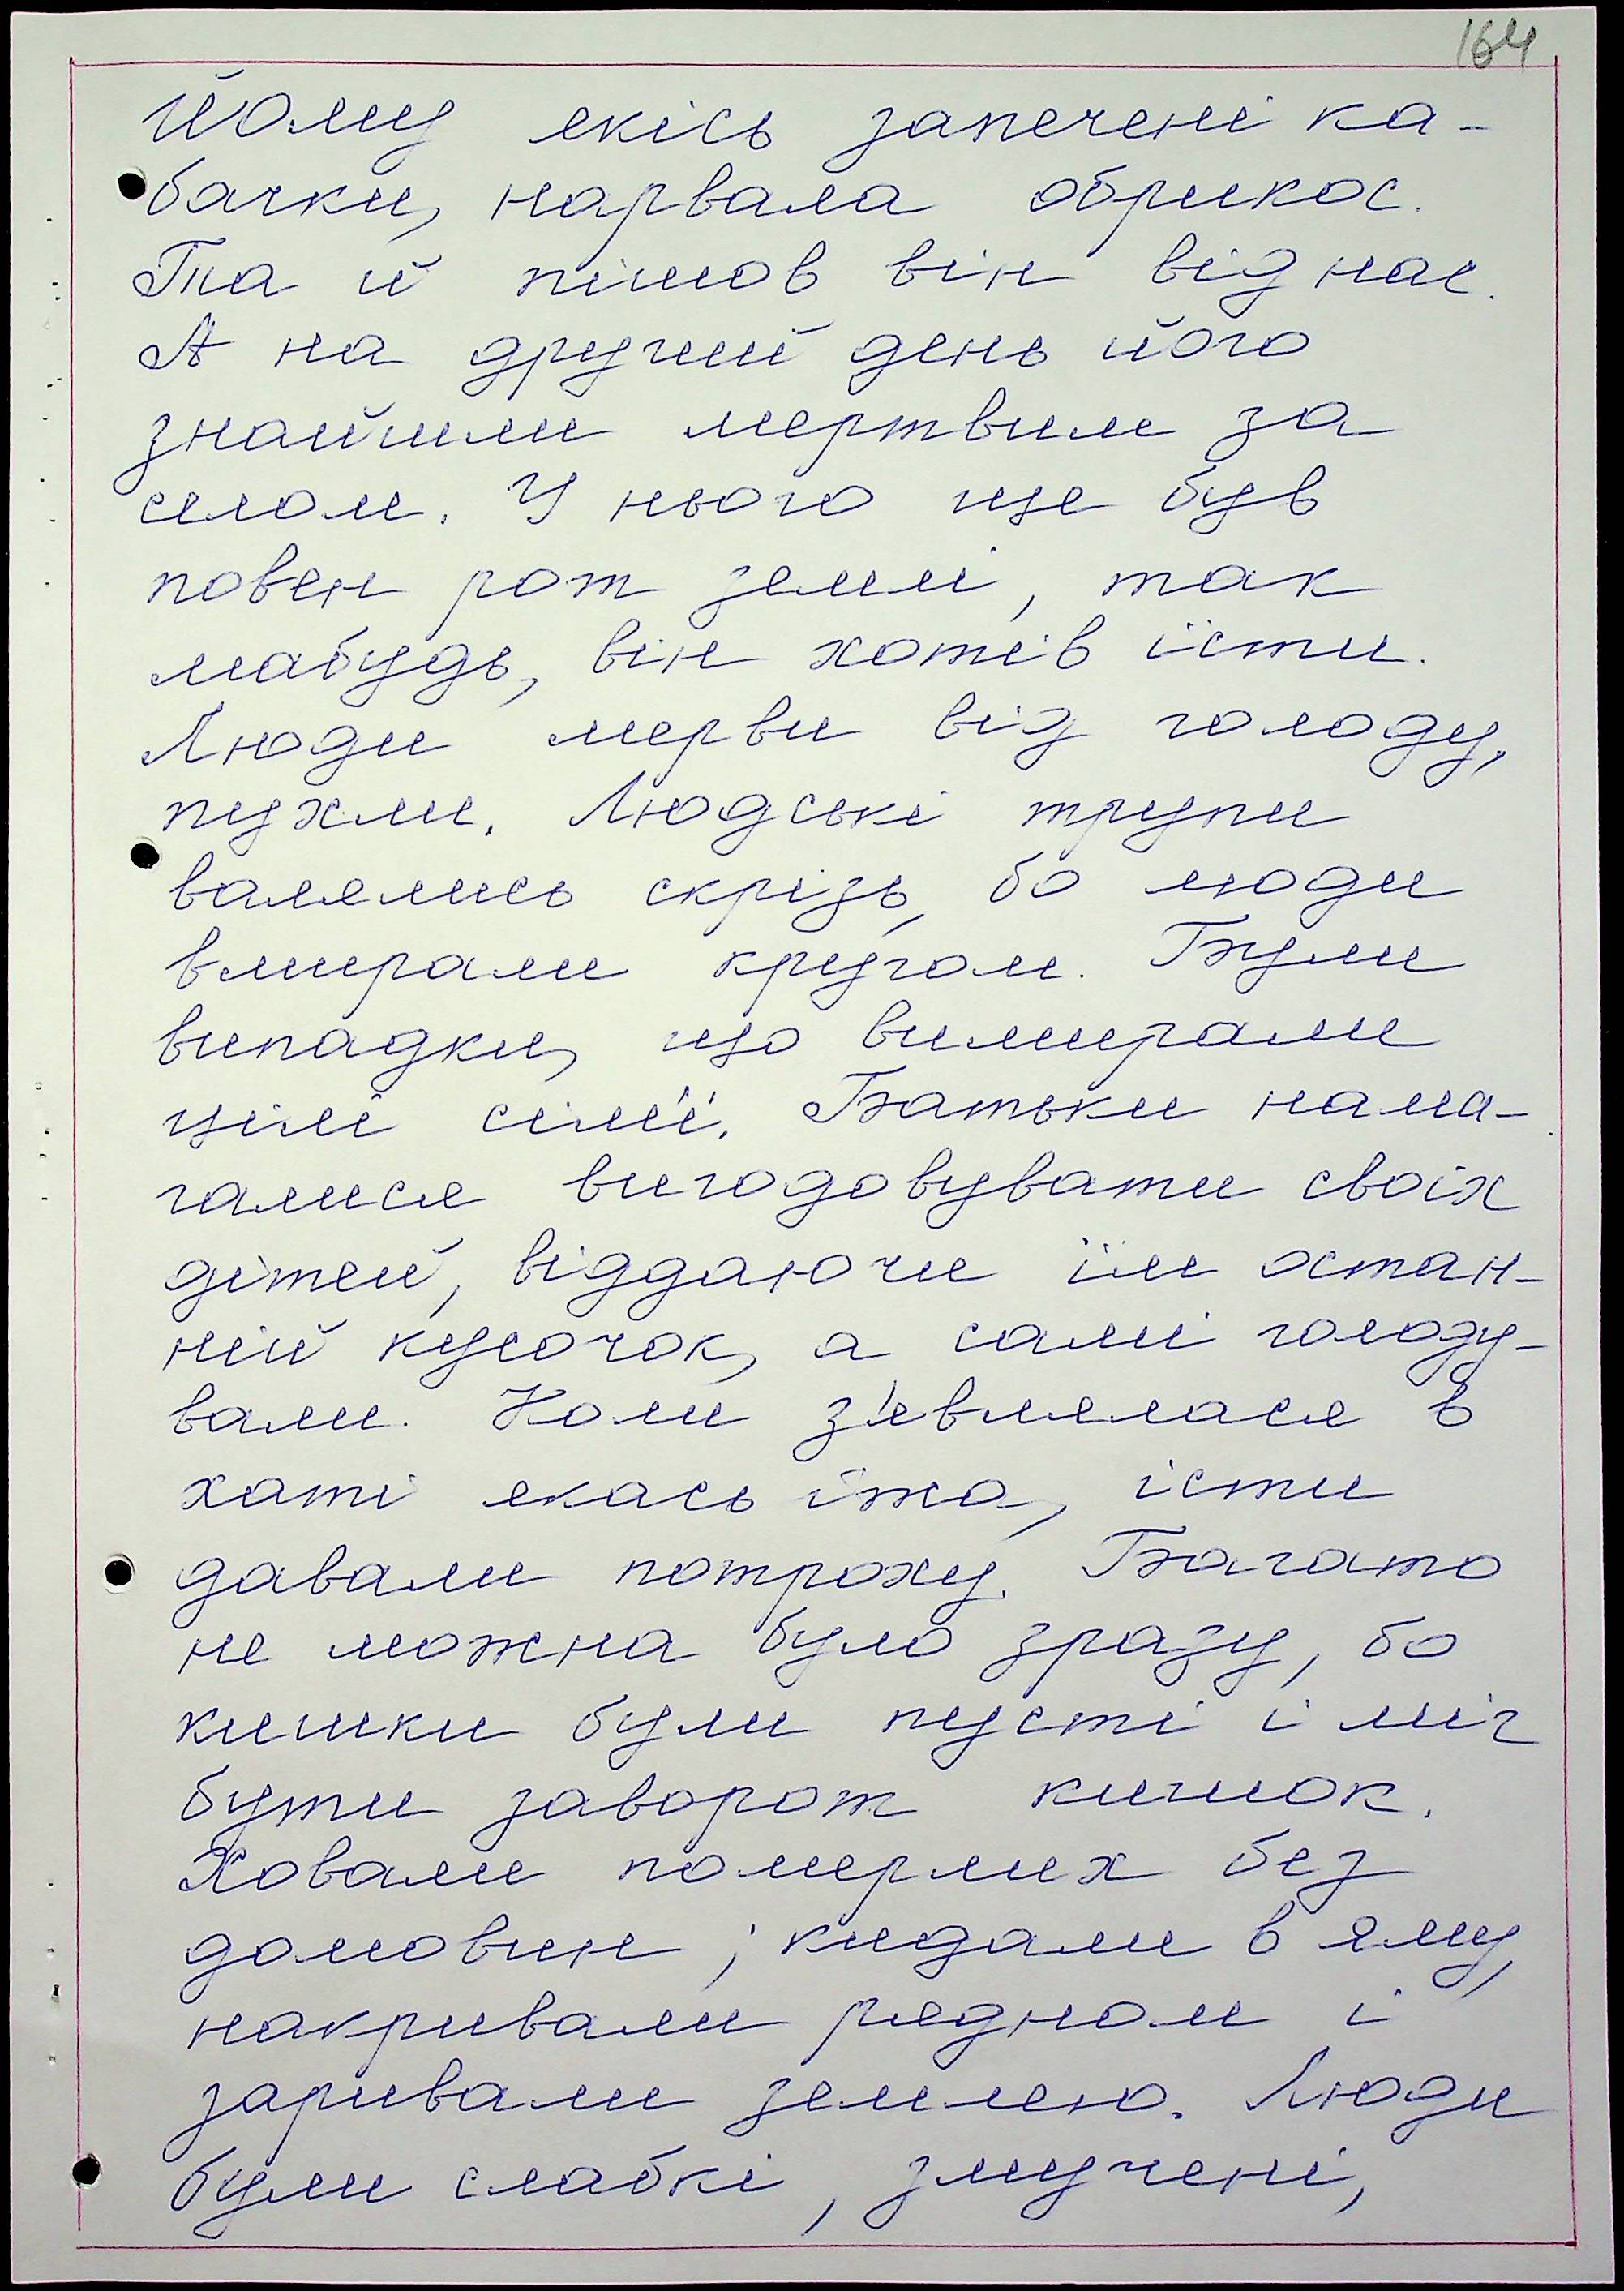 164
йому якісь запечені ка-
бачки, нарвала обрикос.
Та й пішов він від нас.
А на другий день його
знайшли мертвим за
селом. У нього ще був
повен рот землі, так
мабудь, він хотів їсти.
Люди мерви від голоду,
пухли. Людські трупи
валялись скрізь, бо люди
вмирали кругом. Були
випадки, що вимирали
цілі сім'ї. Батьки нама-
галися вигодовувати своїх
дітей, віддаючи їм остан-
ній кусочок, а самі голоду-
вали. Коли з'являлася в
хаті якась їжа, їсти
давали потроху. Багато
не можна було зразу, бо
кишки були пусті і міг
бути заворот кишок.
Ховали померлих без
домовин; кидали в яму,
накривали рядном і
заривали землею. Люди
були слабкі, змучені,